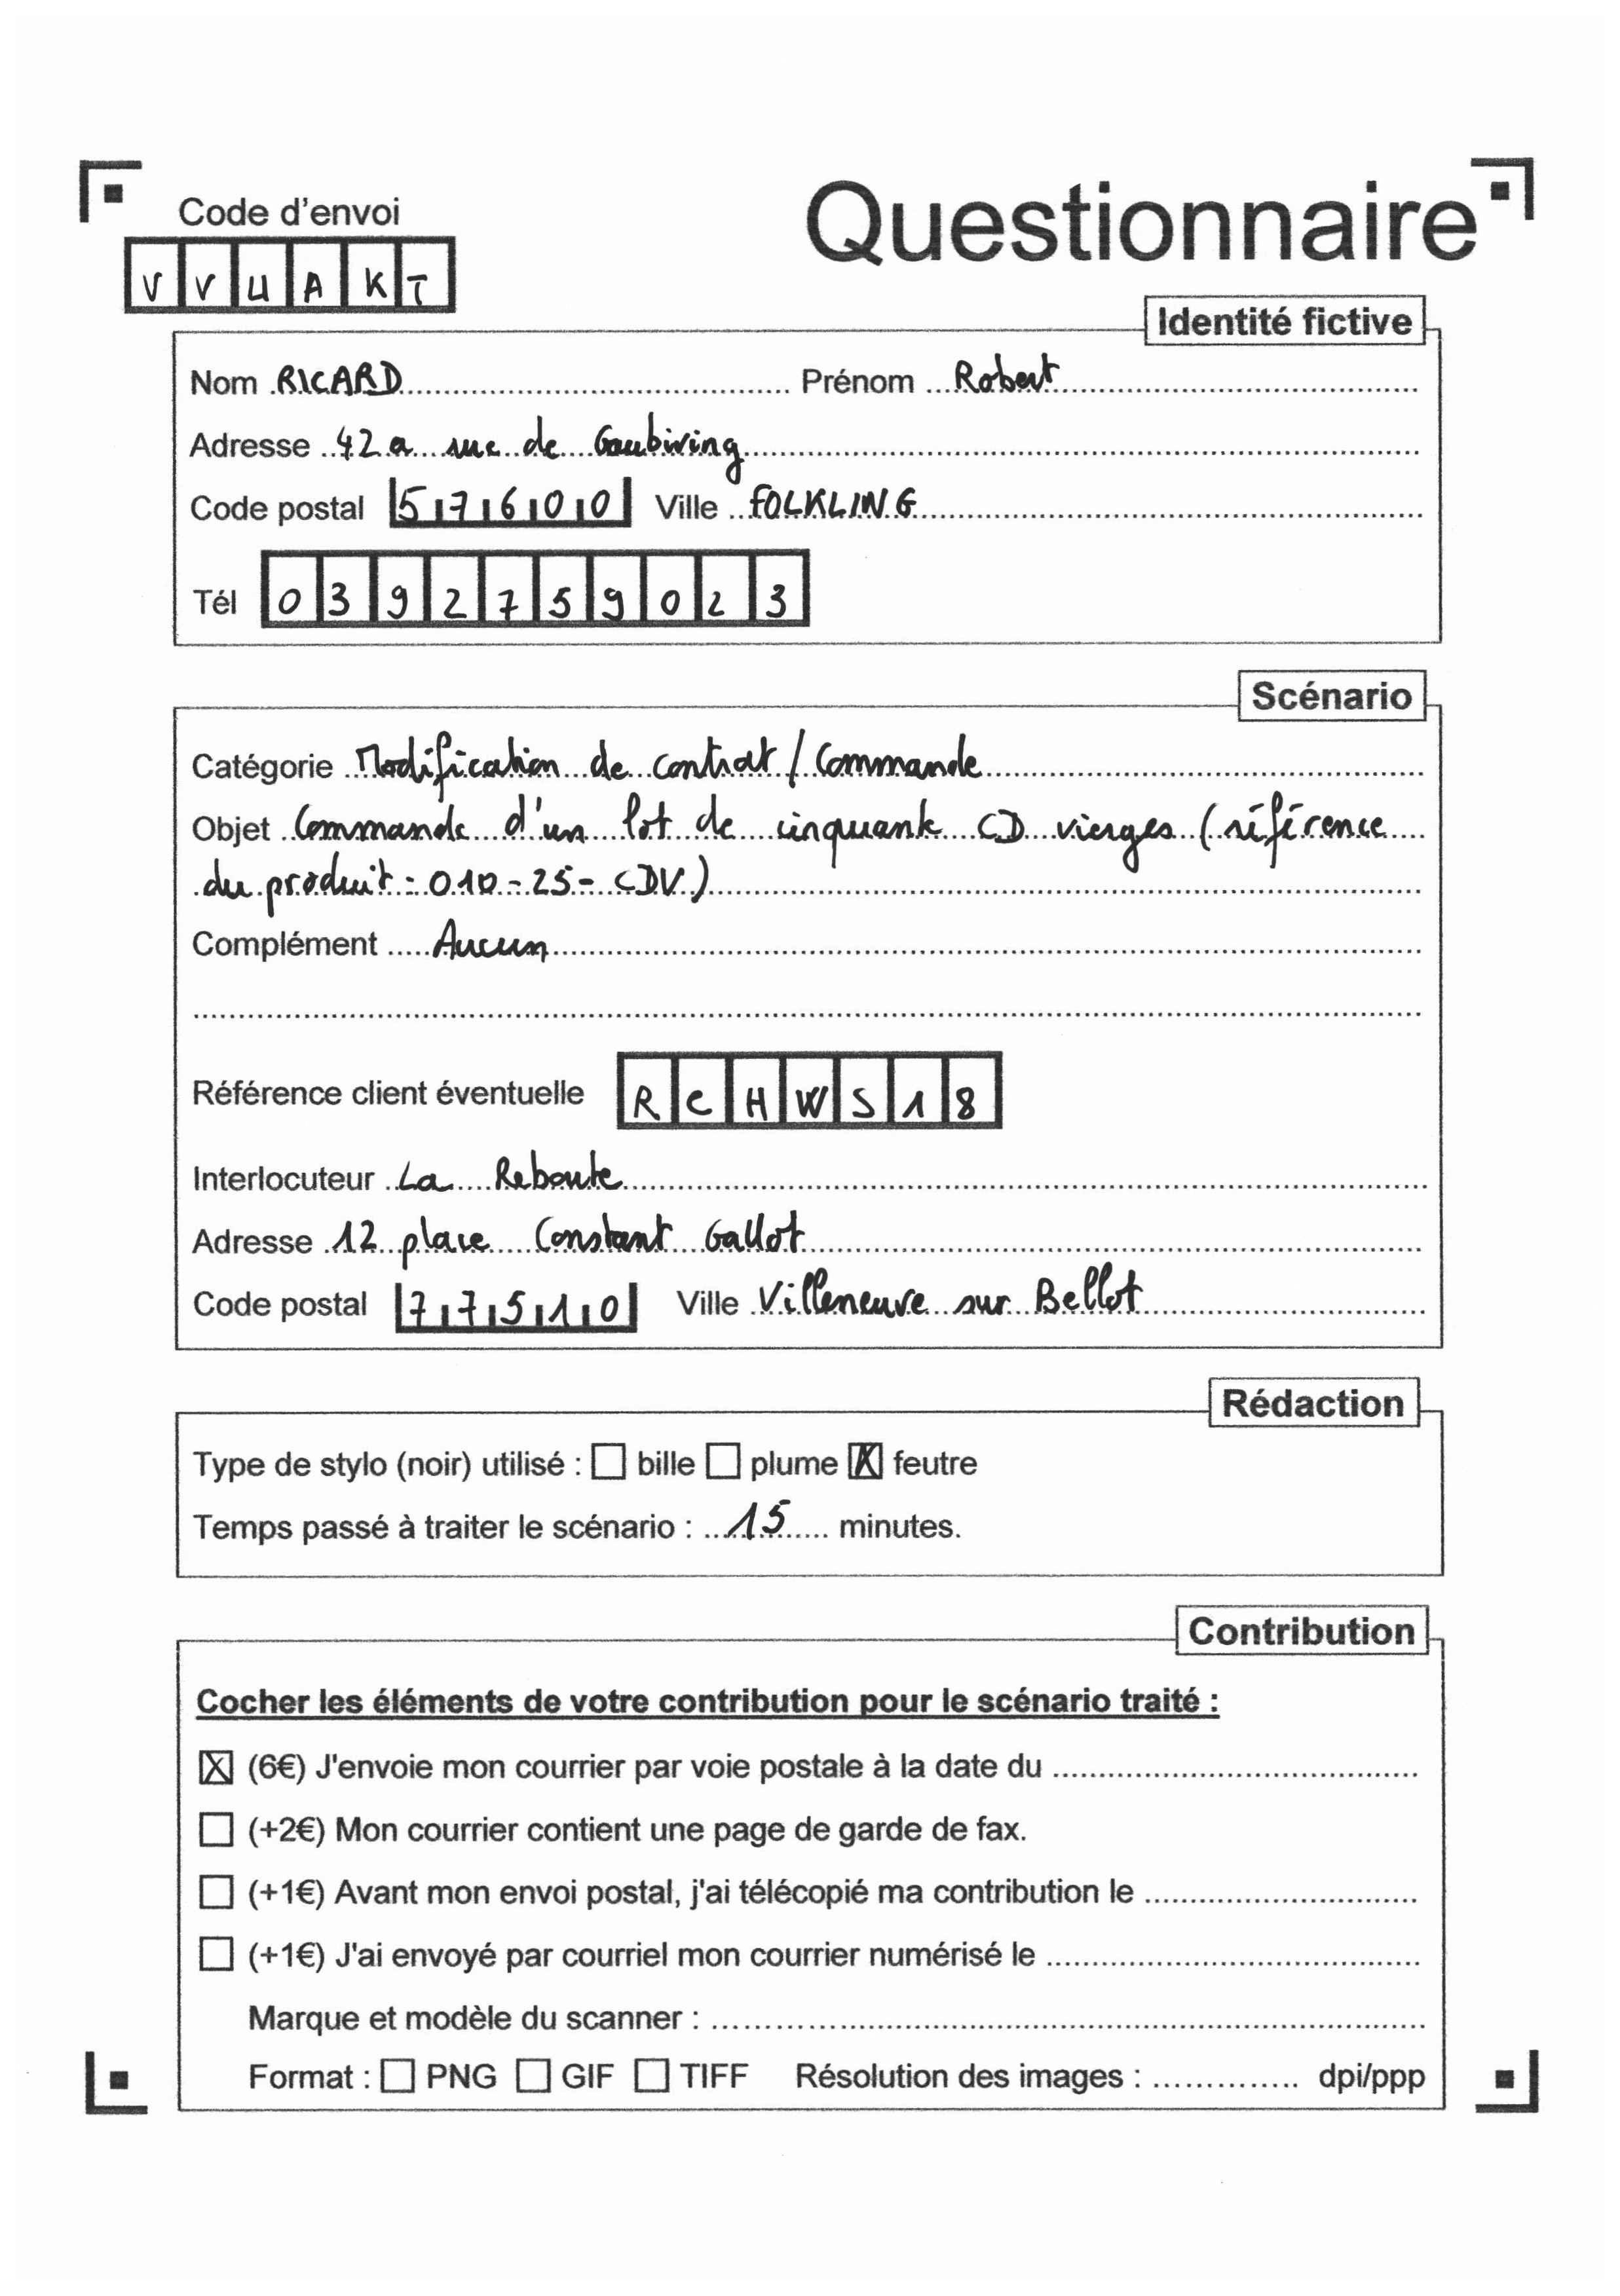 Code d'envoi
Questionnaire
VVUAKT
Identité fictive
Nom RICARD Prénom Robert
Adresse 42 a rue de Gaubiving
Code postal 57600 Ville FOLKLING
Tél 0392759023
Scénario
Catégorie Modification de contrat / Commande
Objet Commande d'un lot de cinquante CD vierges (référence
du produit : 010-25-CDV)
Complément Aucun
Référence client éventuelle RCHWS18
Interlocuteur La Reboute
Adresse 12 place Constant Gallot
Code postal 77510 Ville Villeneuve sur Bellot
Rédaction
Type de stylo (noir) utilisé : ☐ bille ☐ plume ☒ feutre
Temps passé à traiter le scénario : 15 minutes.
Contribution
Cocher les éléments de votre contribution pour le scénario traité :
☒ (6€) J'envoie mon courrier par voie postale à la date du
☐ (+2€) Mon courrier contient une page de garde de fax.
☐ (+1€) Avant mon envoi postal, j'ai télécopié ma contribution le
☐ (+1€) J'ai envoyé par courriel mon courrier numérisé le
Marque et modèle du scanner :
Format : ☐ PNG ☐ GIF ☐ TIFF Résolution des images : dpi/ppp